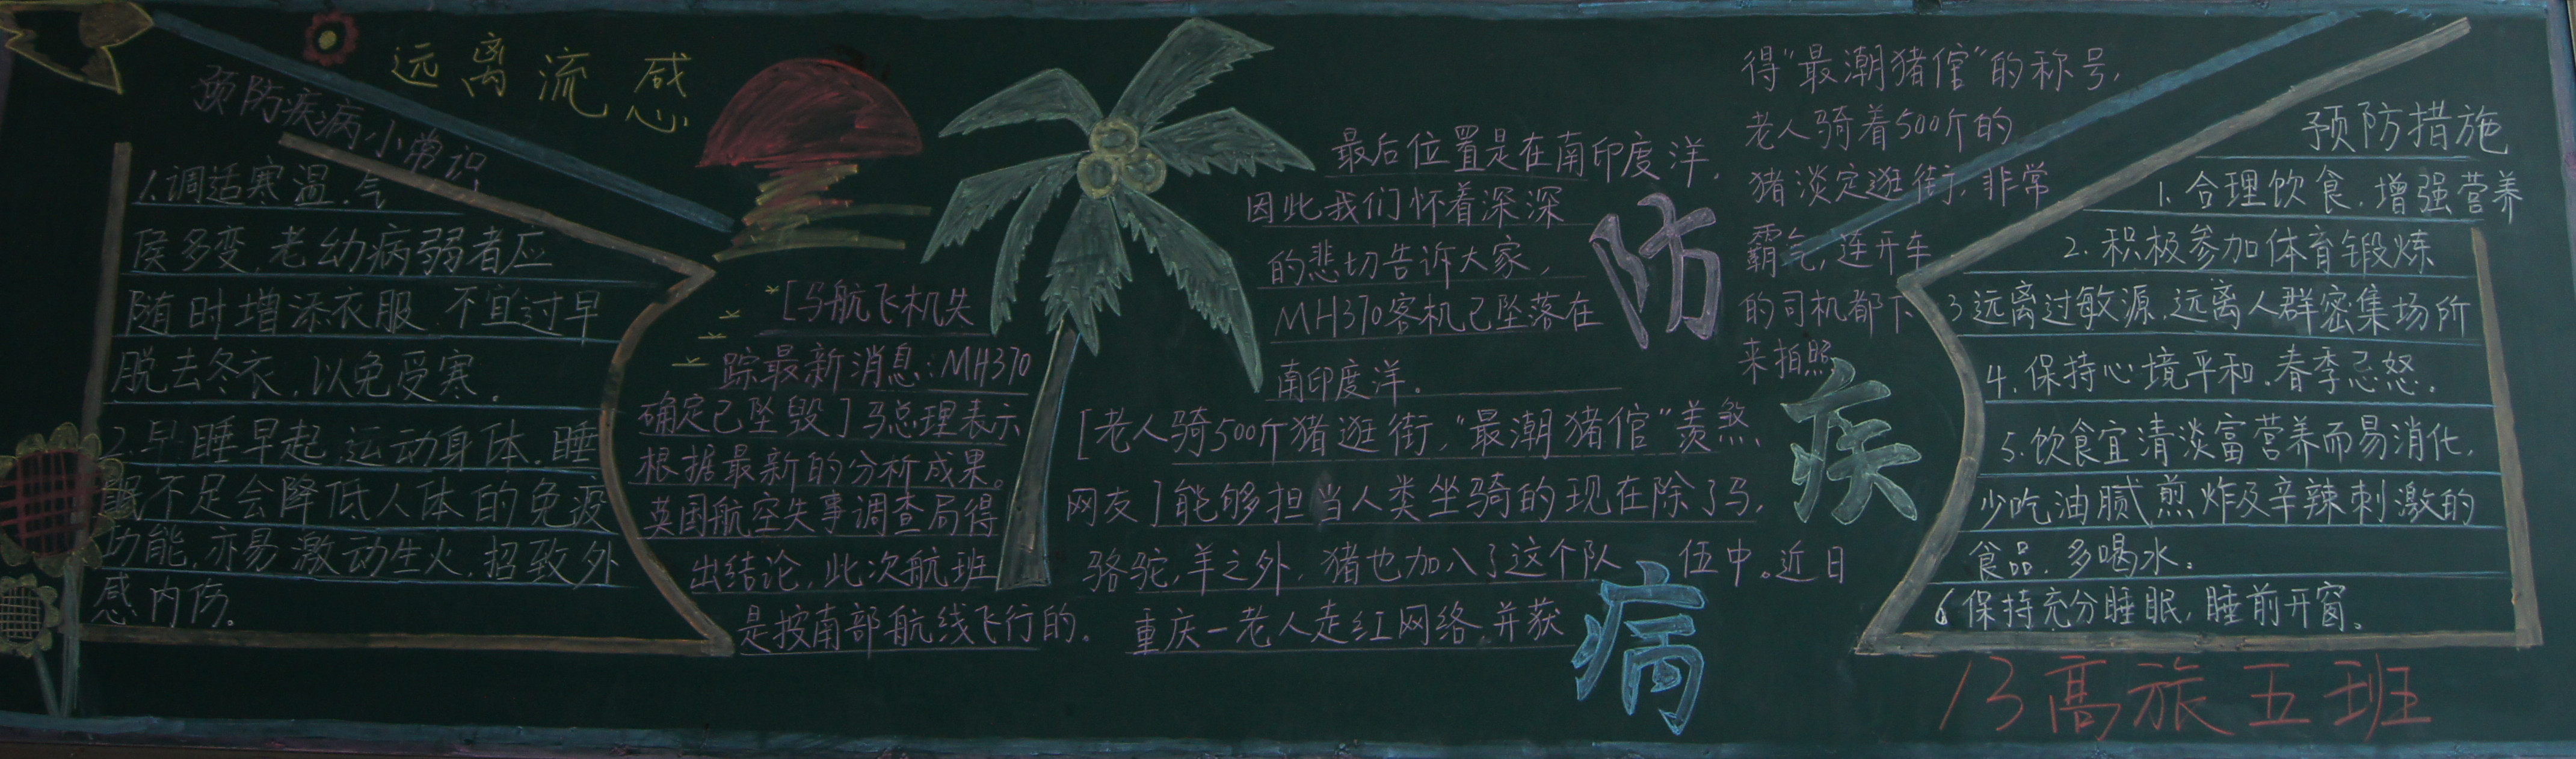 远离流感
预防疾病小常识
1.调适寒温.气
侯多变,老幼病弱者应
随时增添衣服.不宜过早
脱去冬衣,以免受寒。
2.早睡早起.运动身体.睡
眠不足会降低人体的免疫
功能,亦易激动生火,招致外
感内伤。
[马航飞机失
踪最新消息:MH370
确定已坠毁]马总理表示
根据最新的分析成果。
英国航空失事调查局得
出结论,此次航班
是按南部航线飞行的.
最后位置是在南印度洋,
因此我们怀着深深
的悲切告诉大家,
MH370客机已坠落在
南印度洋。
[老人骑500斤猪逛街,“最潮猪倌”羡煞
网友]能够担当人类坐骑的现在除了马,
骆驼,羊之外,猪也加入了这个队伍中。近日
重庆一老人走红网络,并获
得“最潮猪倌”的称号,
老人骑着500斤的
猪淡定逛街,非常
霸气,连开车
的司机都下
来拍照
防
疾
病
预防措施
1.合理饮食.增强营养
2.积极参加体育锻炼
3远离过敏源.远离人群密集场所
4.保持心境平和.春季忌怒。
5.饮食宜清淡富营养而易消化,
少吃油腻煎炸及辛辣刺激的
食品.多喝水。
6保持充分睡眠,睡前开窗。
13高旅五班